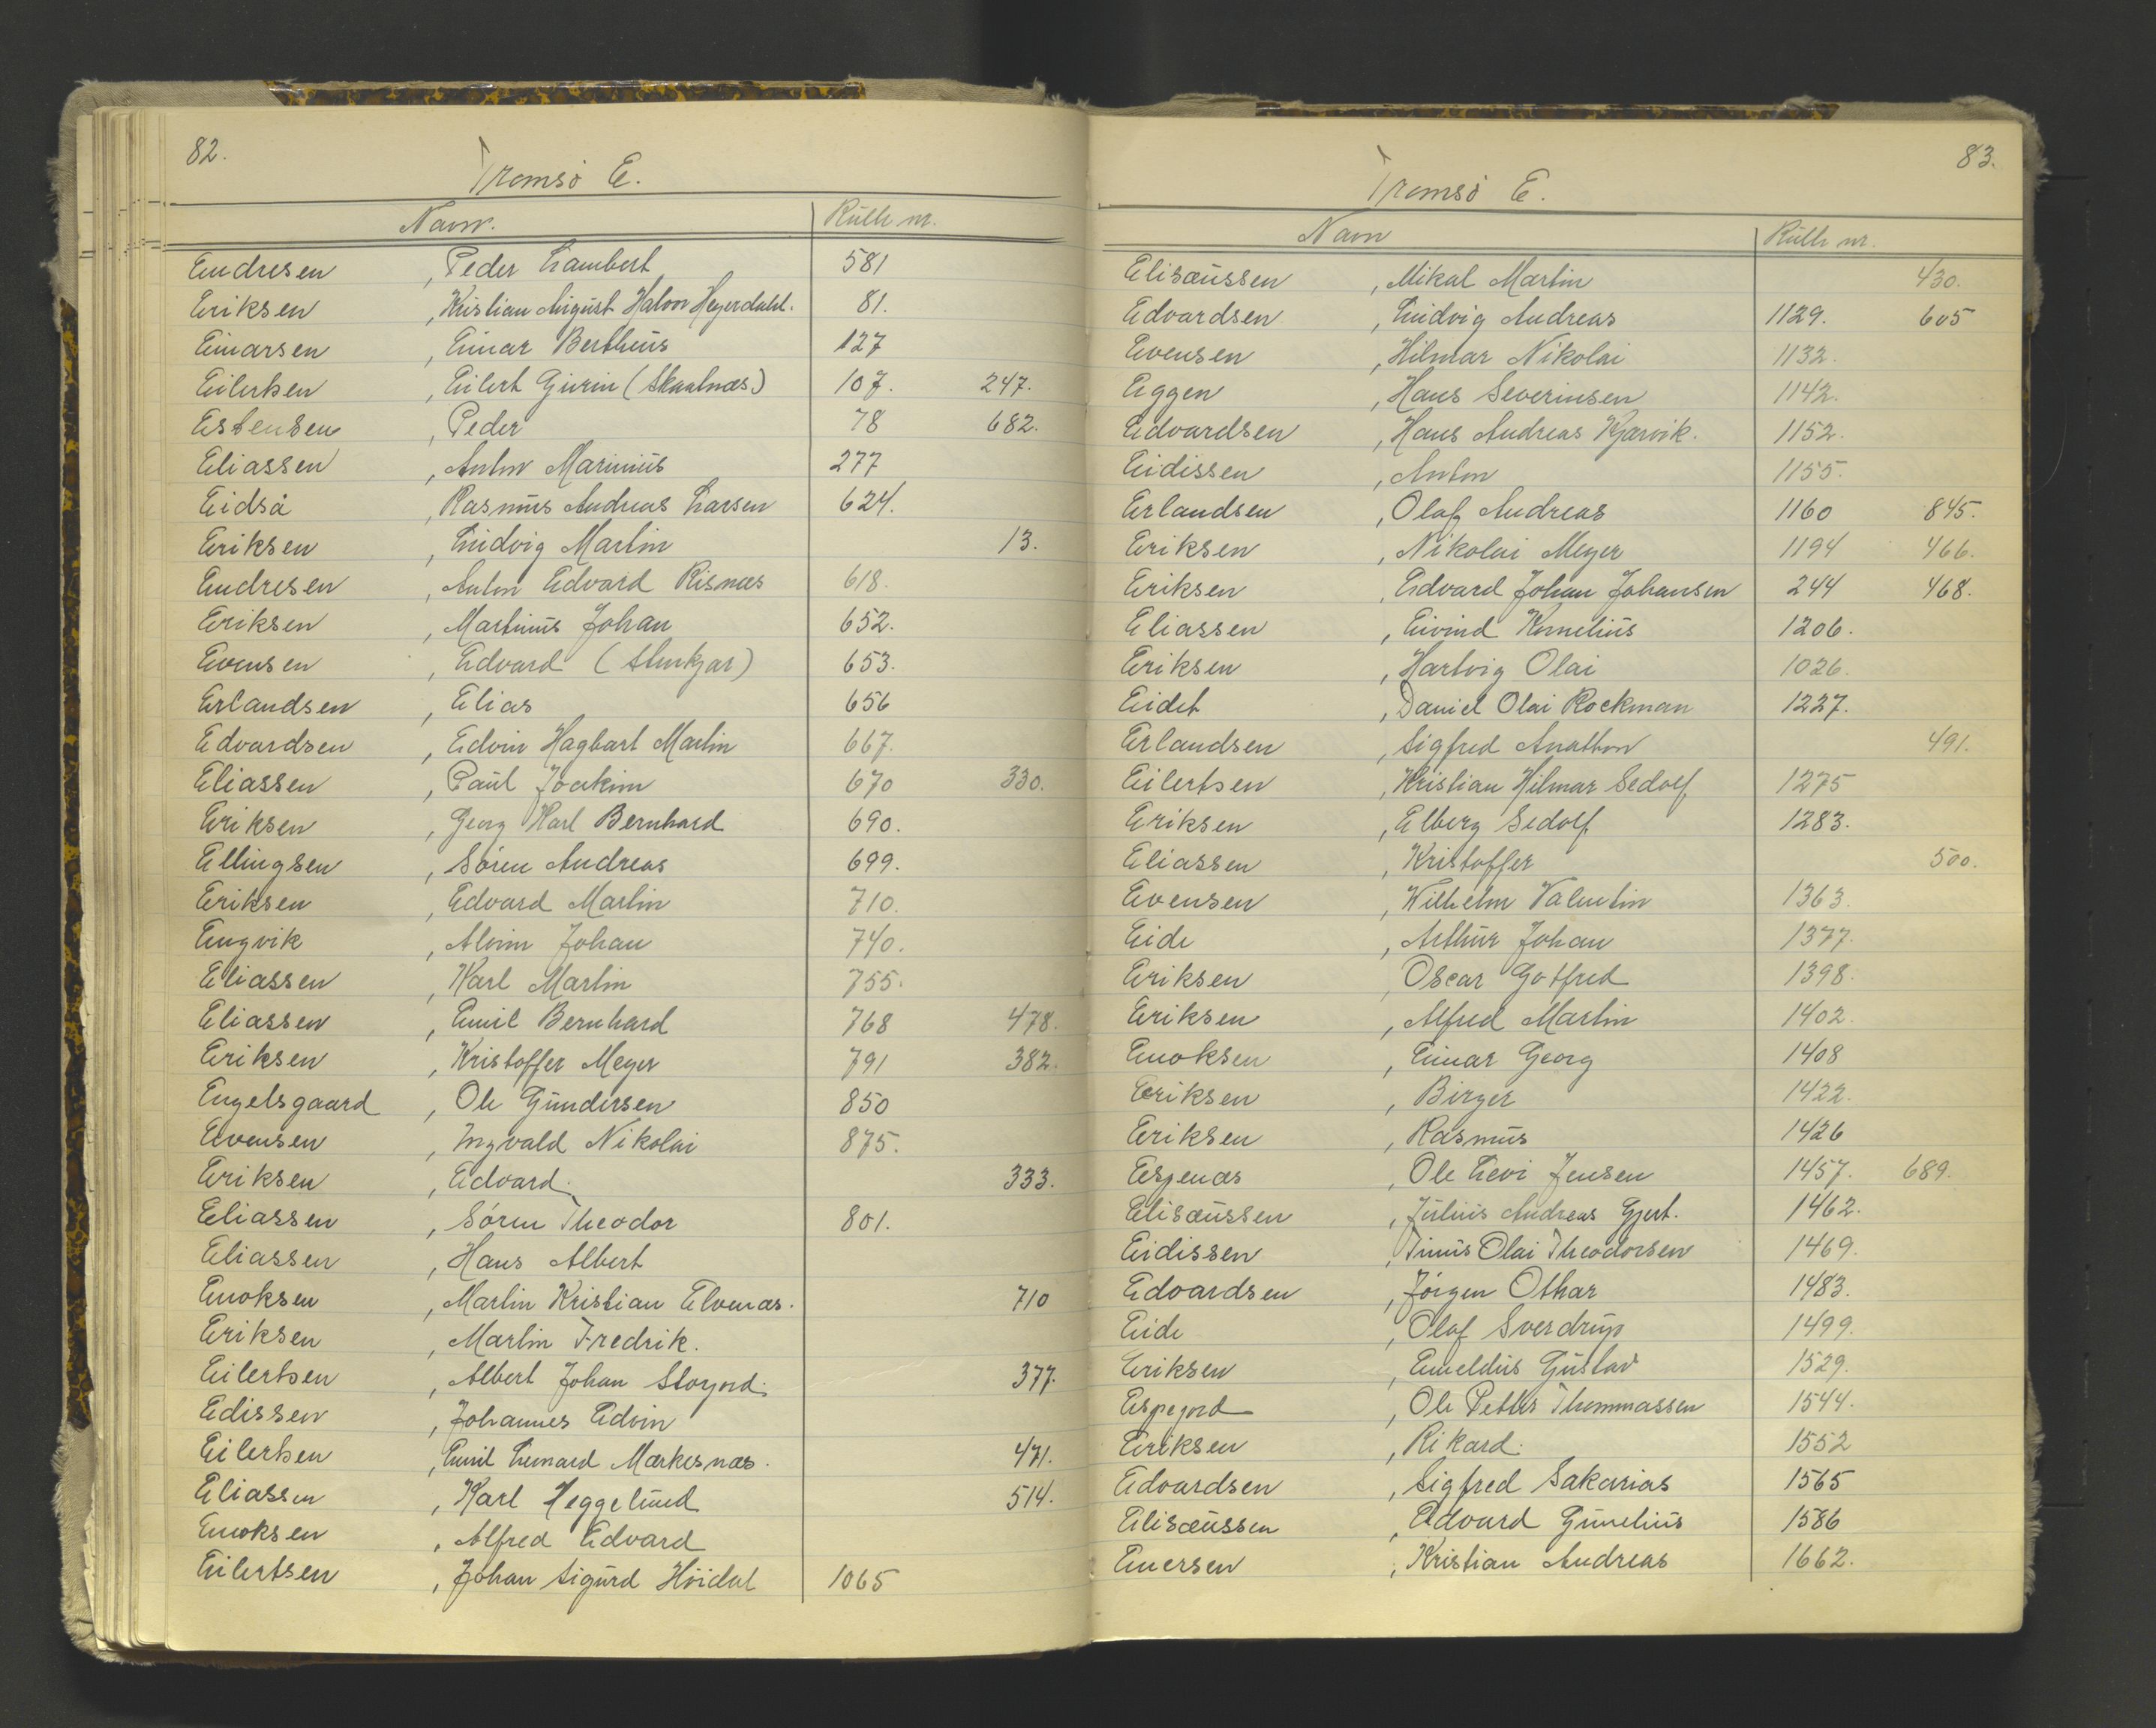 82.
Tromsö E.
Navn. Rulle nr.
Endresen , Peder Lambert 581
Eriksen , Kristian August Halvor Heyerdahl. 81.
Einarsen , Einar Bertheus 127
Eilertsen , Eilert Gierin (Skaalnæs) 107. 247.
Estensen , Peder 78 682.
Eliassen , Anton Marinius 277
Eidså , Rasmus Andreas Larsen 624.
Eriksen , Ludvig Martin 13.
Endresen , Anton Edvard Risnæs 618.
Eriksen , Martinus Johan 652.
Evensen , Edvard (Stenkjær) 653.
Erlandsen , Elias 656
Edvardsen , Edvin Hagbart Martin 667.
Eliassen , Paul Joakim 670 330.
Eriksen , Georg Karl Bernhard 690.
Ellingsen , Sören Andreas 699.
Eriksen , Edvard Martin 710.
Engvik , Alvin Johan 740.
Eliassen , Karl Martin 755.
Eliassen , Emil Bernhard 768 478.
Eriksen , Kristoffer Meyer 791 382.
Engelsgaard , Ole Gundersen 850
Evensen , Ingvald Nikolai 875.
Eriksen , Edvard. 333.
Eliassen , Sören Theodor 801.
Eliassen , Hans Albert
Enoksen , Martin Kristian Elvenæs. 710
Eriksen , Martin Fredrik.
Eilertsen , Albert Johan Storjord. 377.
Edissen , Johannes Edvin
Eilertsen , Emil Lenard Markesnæs. 471.
Eliassen , Karl Heggelund 514.
Enoksen , Alfred Edvard
Eilertsen , Johan Sigurd Höidal 1065
83.
Tromsö E.
Navn Rulle nr.
Elisæussen , Mikal Martin 430.
Edvardsen , Ludvig Andreas 1129. 605
Evensen , Hilmar Nikolai 1132.
Eggen , Hans Severinsen 1142.
Edvardsen , Hans Andreas Kjærvik. 1152.
Eidissen , Anton 1155.
Erlandsen , Olaf Andreas 1160 845.
Eriksen , Nikolai Meyer 1194 466.
Eriksen , Edvard Johan Johansen 244 468.
Eliassen , Eivind Kornelius 1206.
Eriksen , Hartvig Olai 1026.
Eidet , Daniel Olai Rockman 1227.
Erlandsen , Sigfred Anathon 491.
Eilertsen , Kristian Hilmar Sedolf 1275
Eriksen , Elberg Sedolf 1283.
Eliassen , Kristoffer 500.
Evensen , Wilhelm Valentin 1363.
Eide , Arthur Johan 1377.
Eriksen , Oscar Gotfred 1398.
Eriksen , Alfred Martin 1402.
Enoksen , Einar Georg 1408
Eriksen , Birger 1422.
Eriksen , Rasmus 1426
Espenæs , Ole Levi Jensen 1457. 689.
Elisæussen , Julius Andreas Gjert. 1462.
Eidissen , Tinus Olai Theodorsen 1469.
Edvardsen , Jörgen Othar 1483.
Eide , Olaf Sverdrup 1499.
Eriksen , Emeldus Gustav 1529.
Espejord , Ole Petter Thommassen 1544.
Eriksen , Rikard. 1552
Edvardsen , Sigfred Sakarias 1565
Elisæussen , Edvard Gunelius 1586
Enersen , Kristian Andreas 1662.